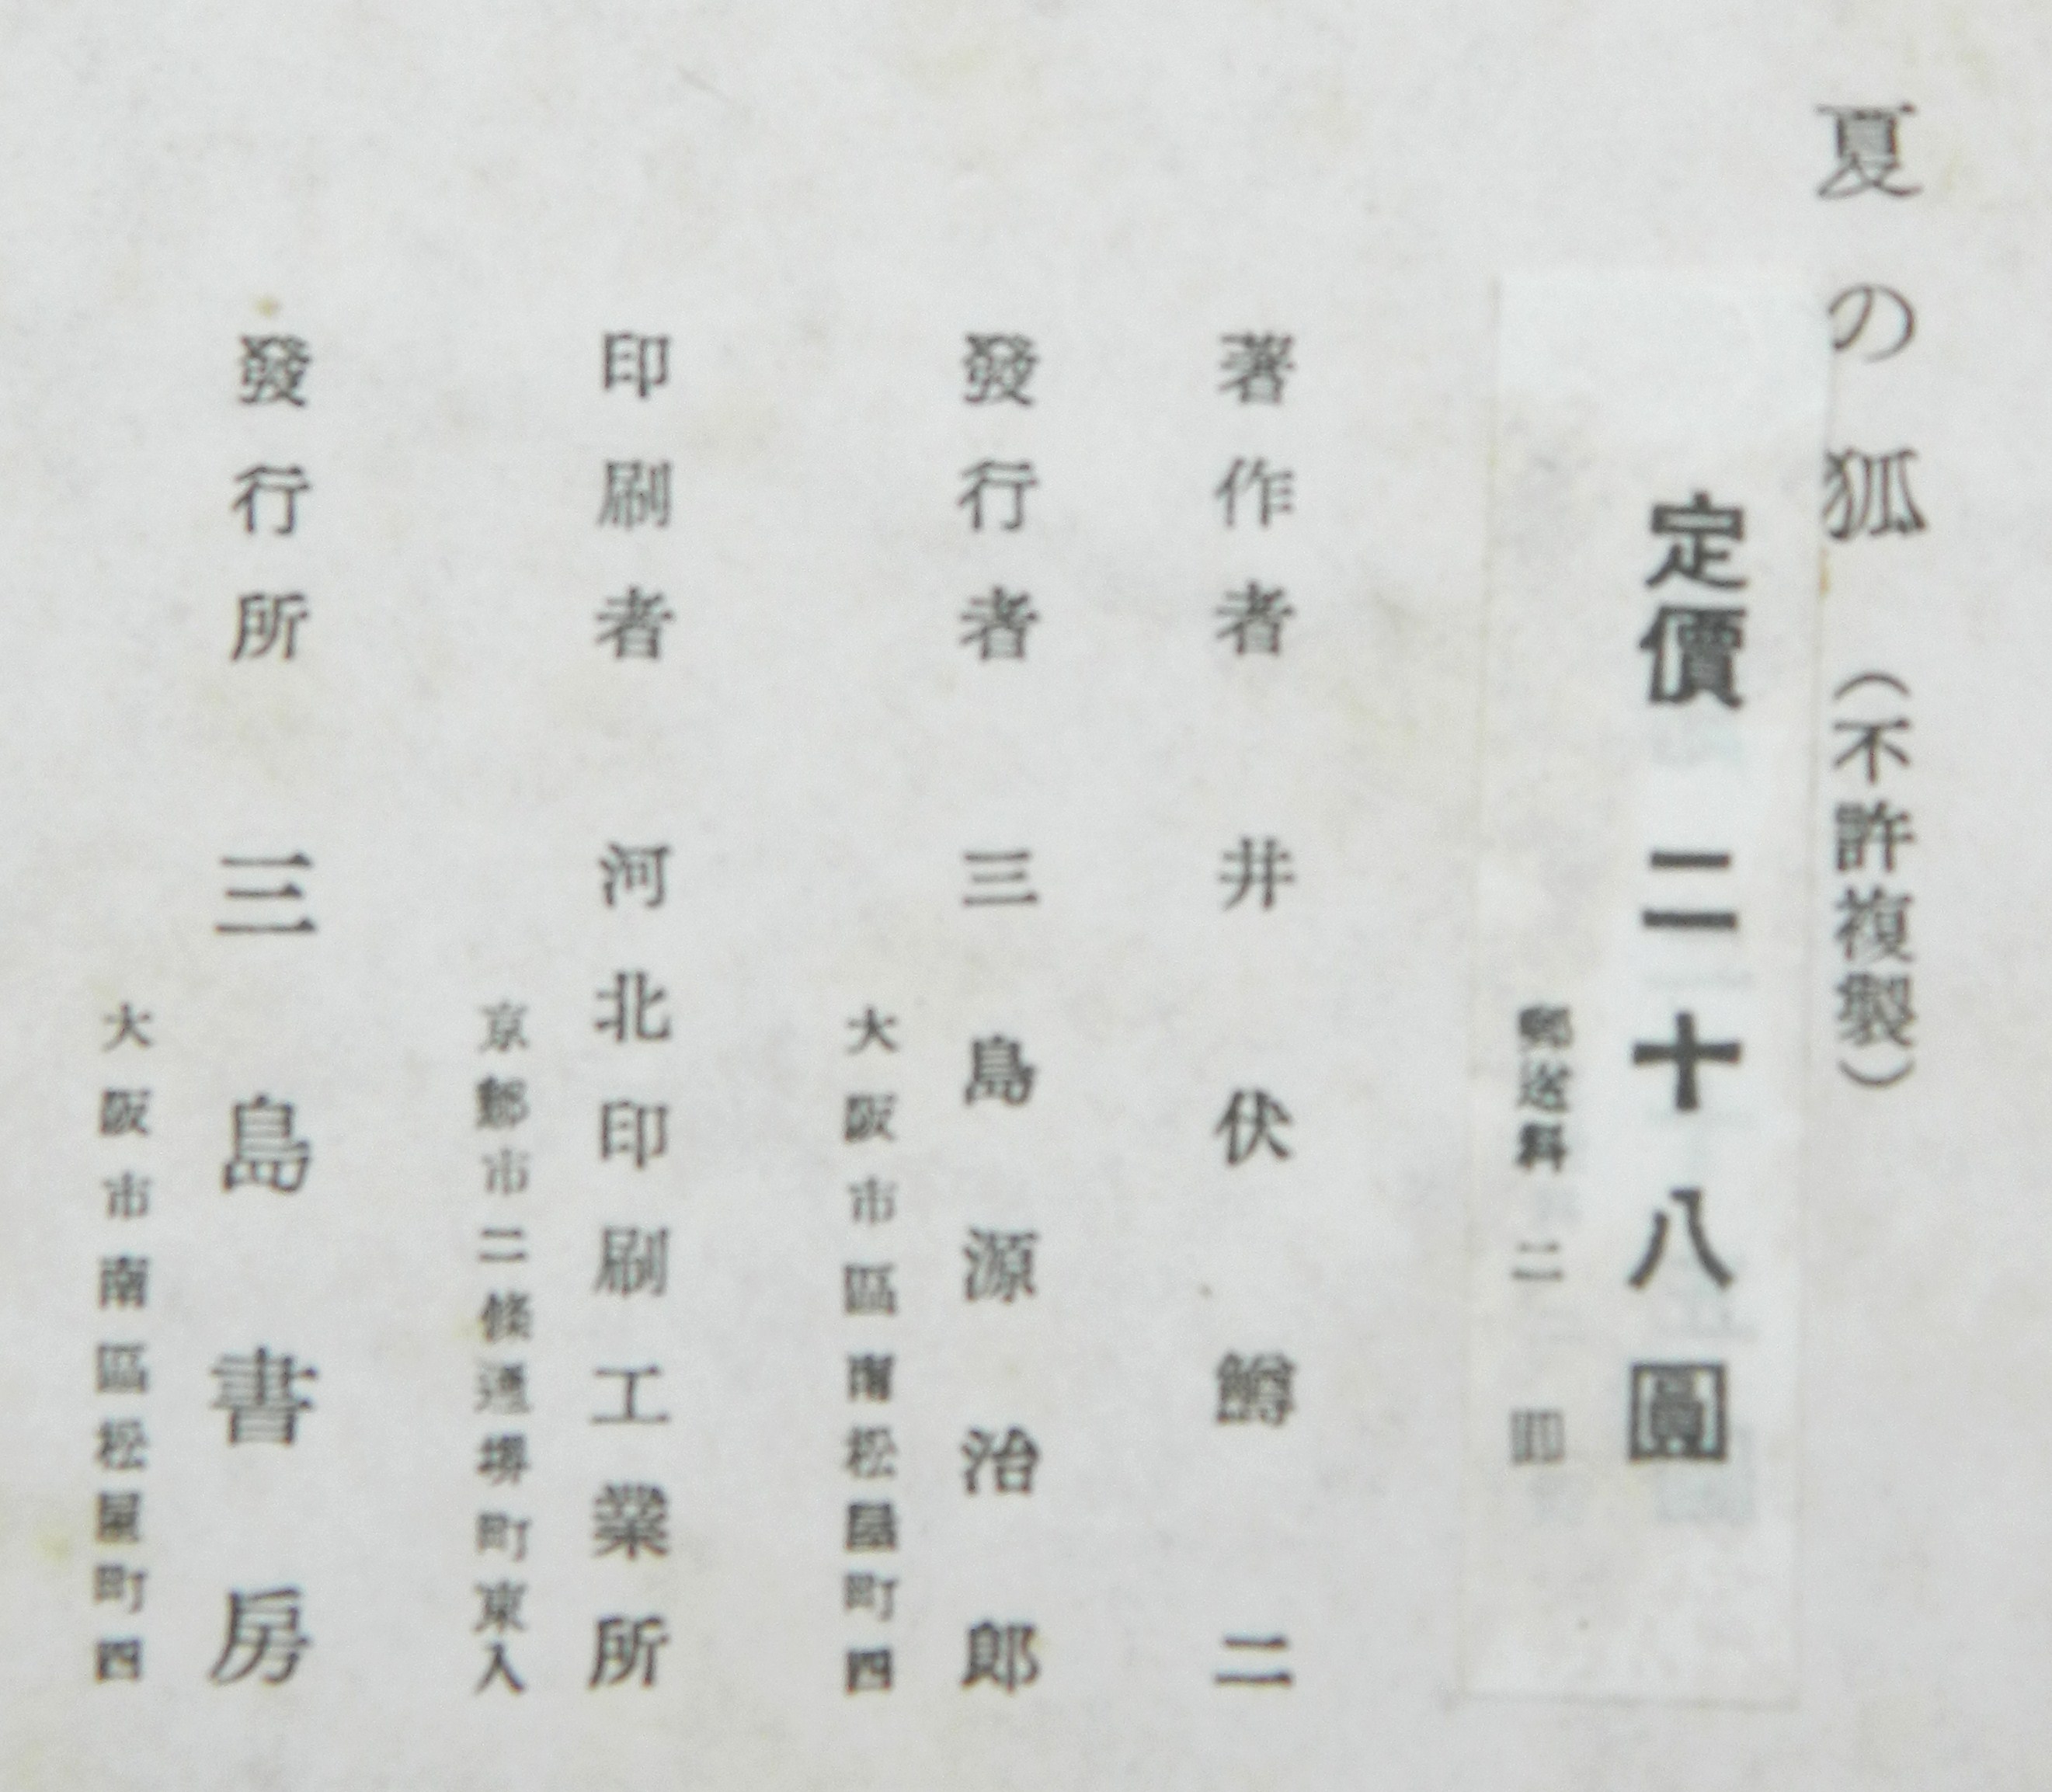 夏の狐 (不許複製)
定價 二十八圓
郵送料 二圓
著作者 井伏鱒二
發行者 三島源治郎
大阪市區南松屋町四
印刷者 河北印刷工業所
京都市二條通堺町東入
發行所 三島書房
大阪市南區松屋町四